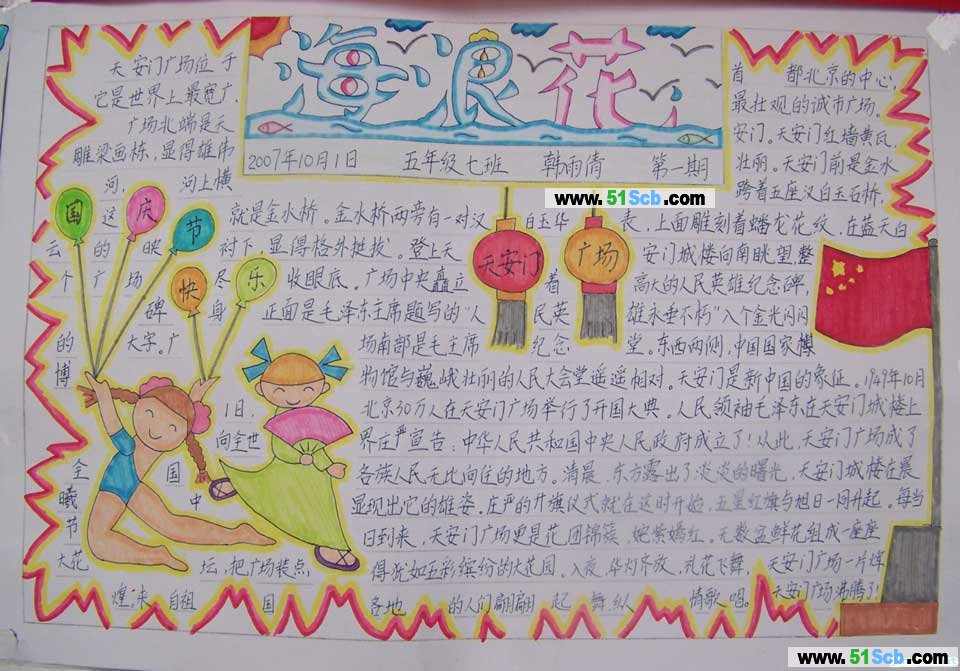 海浪花
2007年10月1日 五年级七班 韩雨倩 第一期
www.51Scb.com
国庆节快乐
天安门广场
天安门广场位于首都北京的中心,
它是世界上最宽广、最壮观的诚市广场。
广场北端是天安门。天安门红墙黄瓦,
雕梁画栋,显得雄伟壮丽。天安门前是金水
河,河上横跨着五座汉白玉石桥,
这就是金水桥。金水桥两旁有一对汉白玉华表,上面雕刻着蟠龙花纹,在蓝天白
云的映衬下,显得格外挺拔。登上天安门城楼向南眺望,整
个广场尽收眼底。广场中央矗立着高大的人民英雄纪念碑,
碑身正面是毛泽东主席题写的“人民英雄永垂不朽”入个金光闪闪
的大字。广场南部是毛主席纪念堂。东西两侧,中国国家博
博物馆与巍峨壮丽的人民大会堂遥遥相对。天安门是新中国的象征。1949年10月
1日,北京30万人在天安门广场举行了开国大典。人民领袖毛泽东在天安门城楼上
向全世界庄严宣告:中华人民共和国中央人民政府成立了!从此,天安门广场成了
全国各族人民无比向往的地方。清晨,东方露出了淡淡的曙光,天安门城楼在晨
曦中显现出它的雄姿,庄严的升旗仪式就在这时开始,五星红旗与旭日一同升起。每当
节日到来,天安门广场更是花团锦簇,姹紫嫣红。无数盆鲜花组成一座座
大花坛,把广场装点得犹如五彩缤纷的大花园。入夜,华灯齐放,礼花飞舞,天安门广场一片辉
煌。来自祖国各地的人们翩翩起舞,纵情歌唱。天安门广场沸腾了!
www.51Scb.com